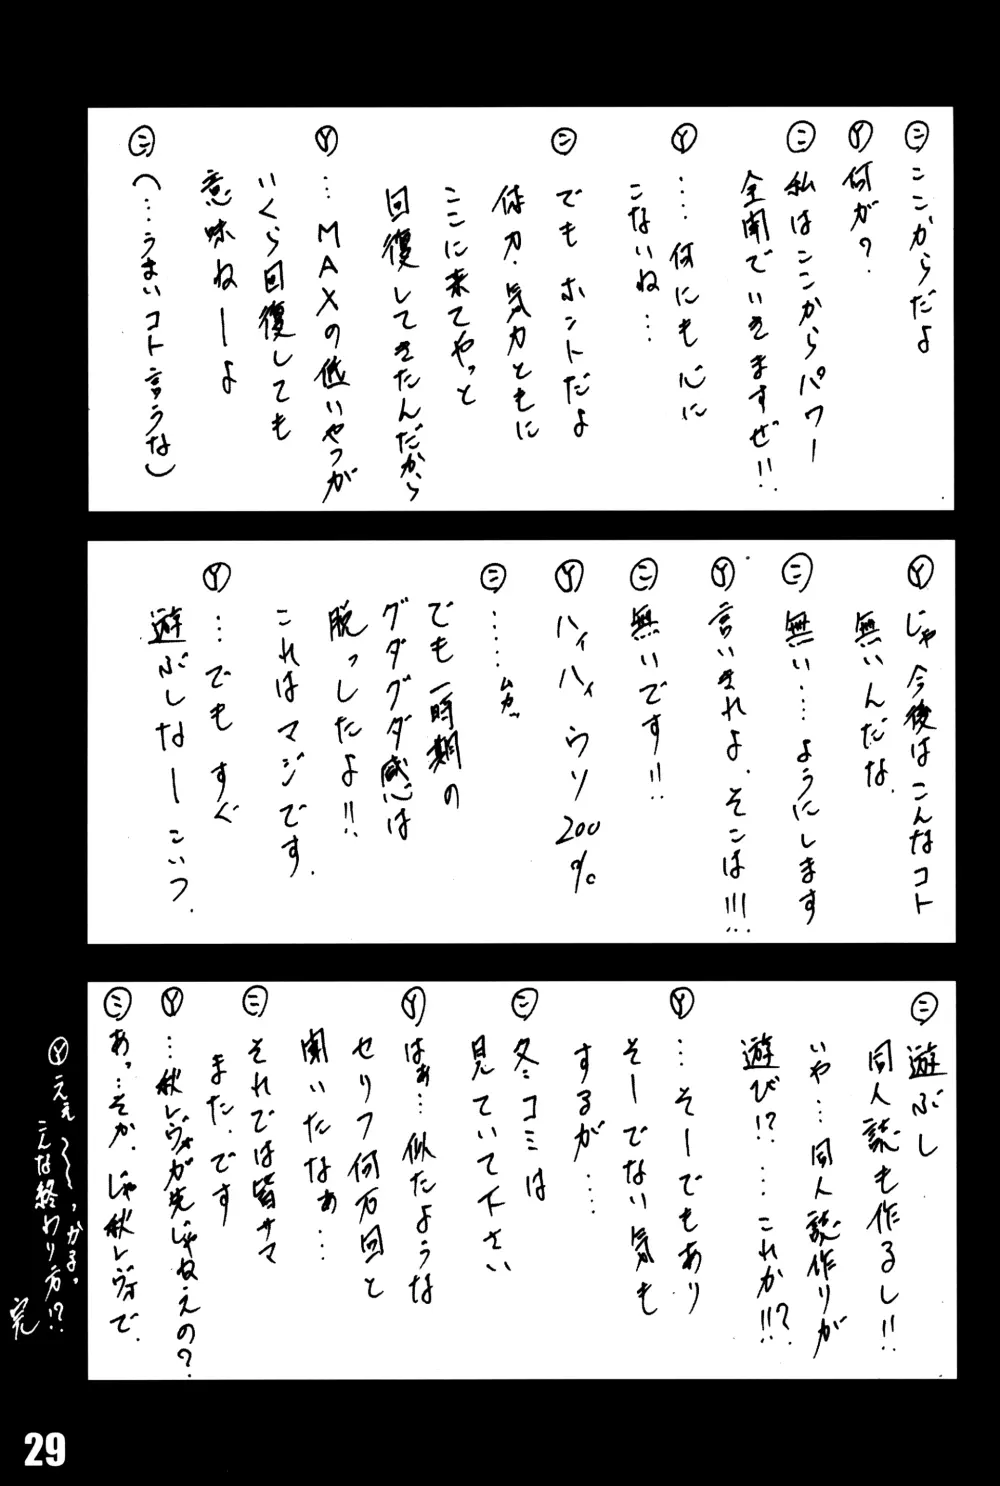 ㊁ここからだよ
Ⓨ何が?
㊁私はここからパワー
全開でいきますぜ!!
Ⓨ……何にも心に
こないね…
㊁でもホントだよ
体力・気力ともに
ここに来てやっと
回復してきたんだから
Ⓨ…MAXの低いやつが
いくら回復しても
意味ねーよ
㊁(…うまいコト言うな)
Ⓨじゃ今後はこんなコト
無いんだな.
㊁無い…ようにします
Ⓨ言いきれよ、そこは!!!
㊁無いです!!
Ⓨハイハイ ウソ200%
㊁……ムカッ
でも一時期の
グダグダ感は
脱っしたよ!!
これはマジです.
Ⓨ…でもすぐ
遊ぶしなーこいつ.
㊁遊ぶし
同人誌も作るし!!
いや…同人誌作りが
遊び!?…これか!!?
Ⓨ…そーでもあり
そーでない気も
するが……
㊁冬コミは
見ていて下さい
Ⓨはぁ…似たような
セリフ何万回と
聞いたなぁ…
㊁それでは皆サマ
また.です
Ⓨ…秋レヴォが先じゃねえの?
㊁あっ…そか.じゃ秋レヴォで.
Ⓨええ〜〜っかるっ
こんな終わり方!?
完
29